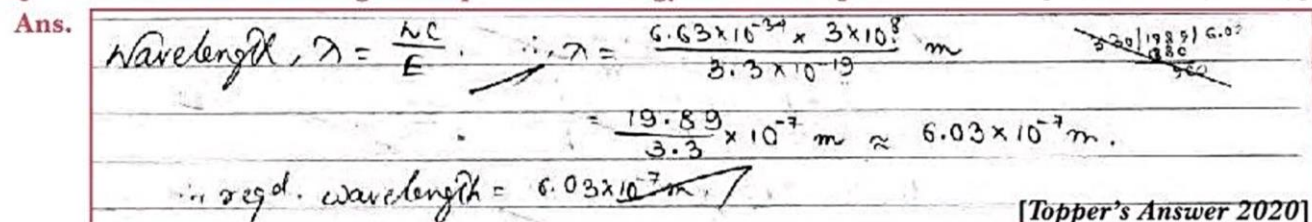 Ans.
Wavelength, λ = hc/E . ∴ λ = 6.63×10⁻³⁴ × 3×10⁸ / 3.3×10⁻¹⁹ m
= 19.89/3.3 × 10⁻⁷ m ≈ 6.03×10⁻⁷ m.
∴ reqd. wavelength = 6.03×10⁻⁷ m.
[Topper's Answer 2020]